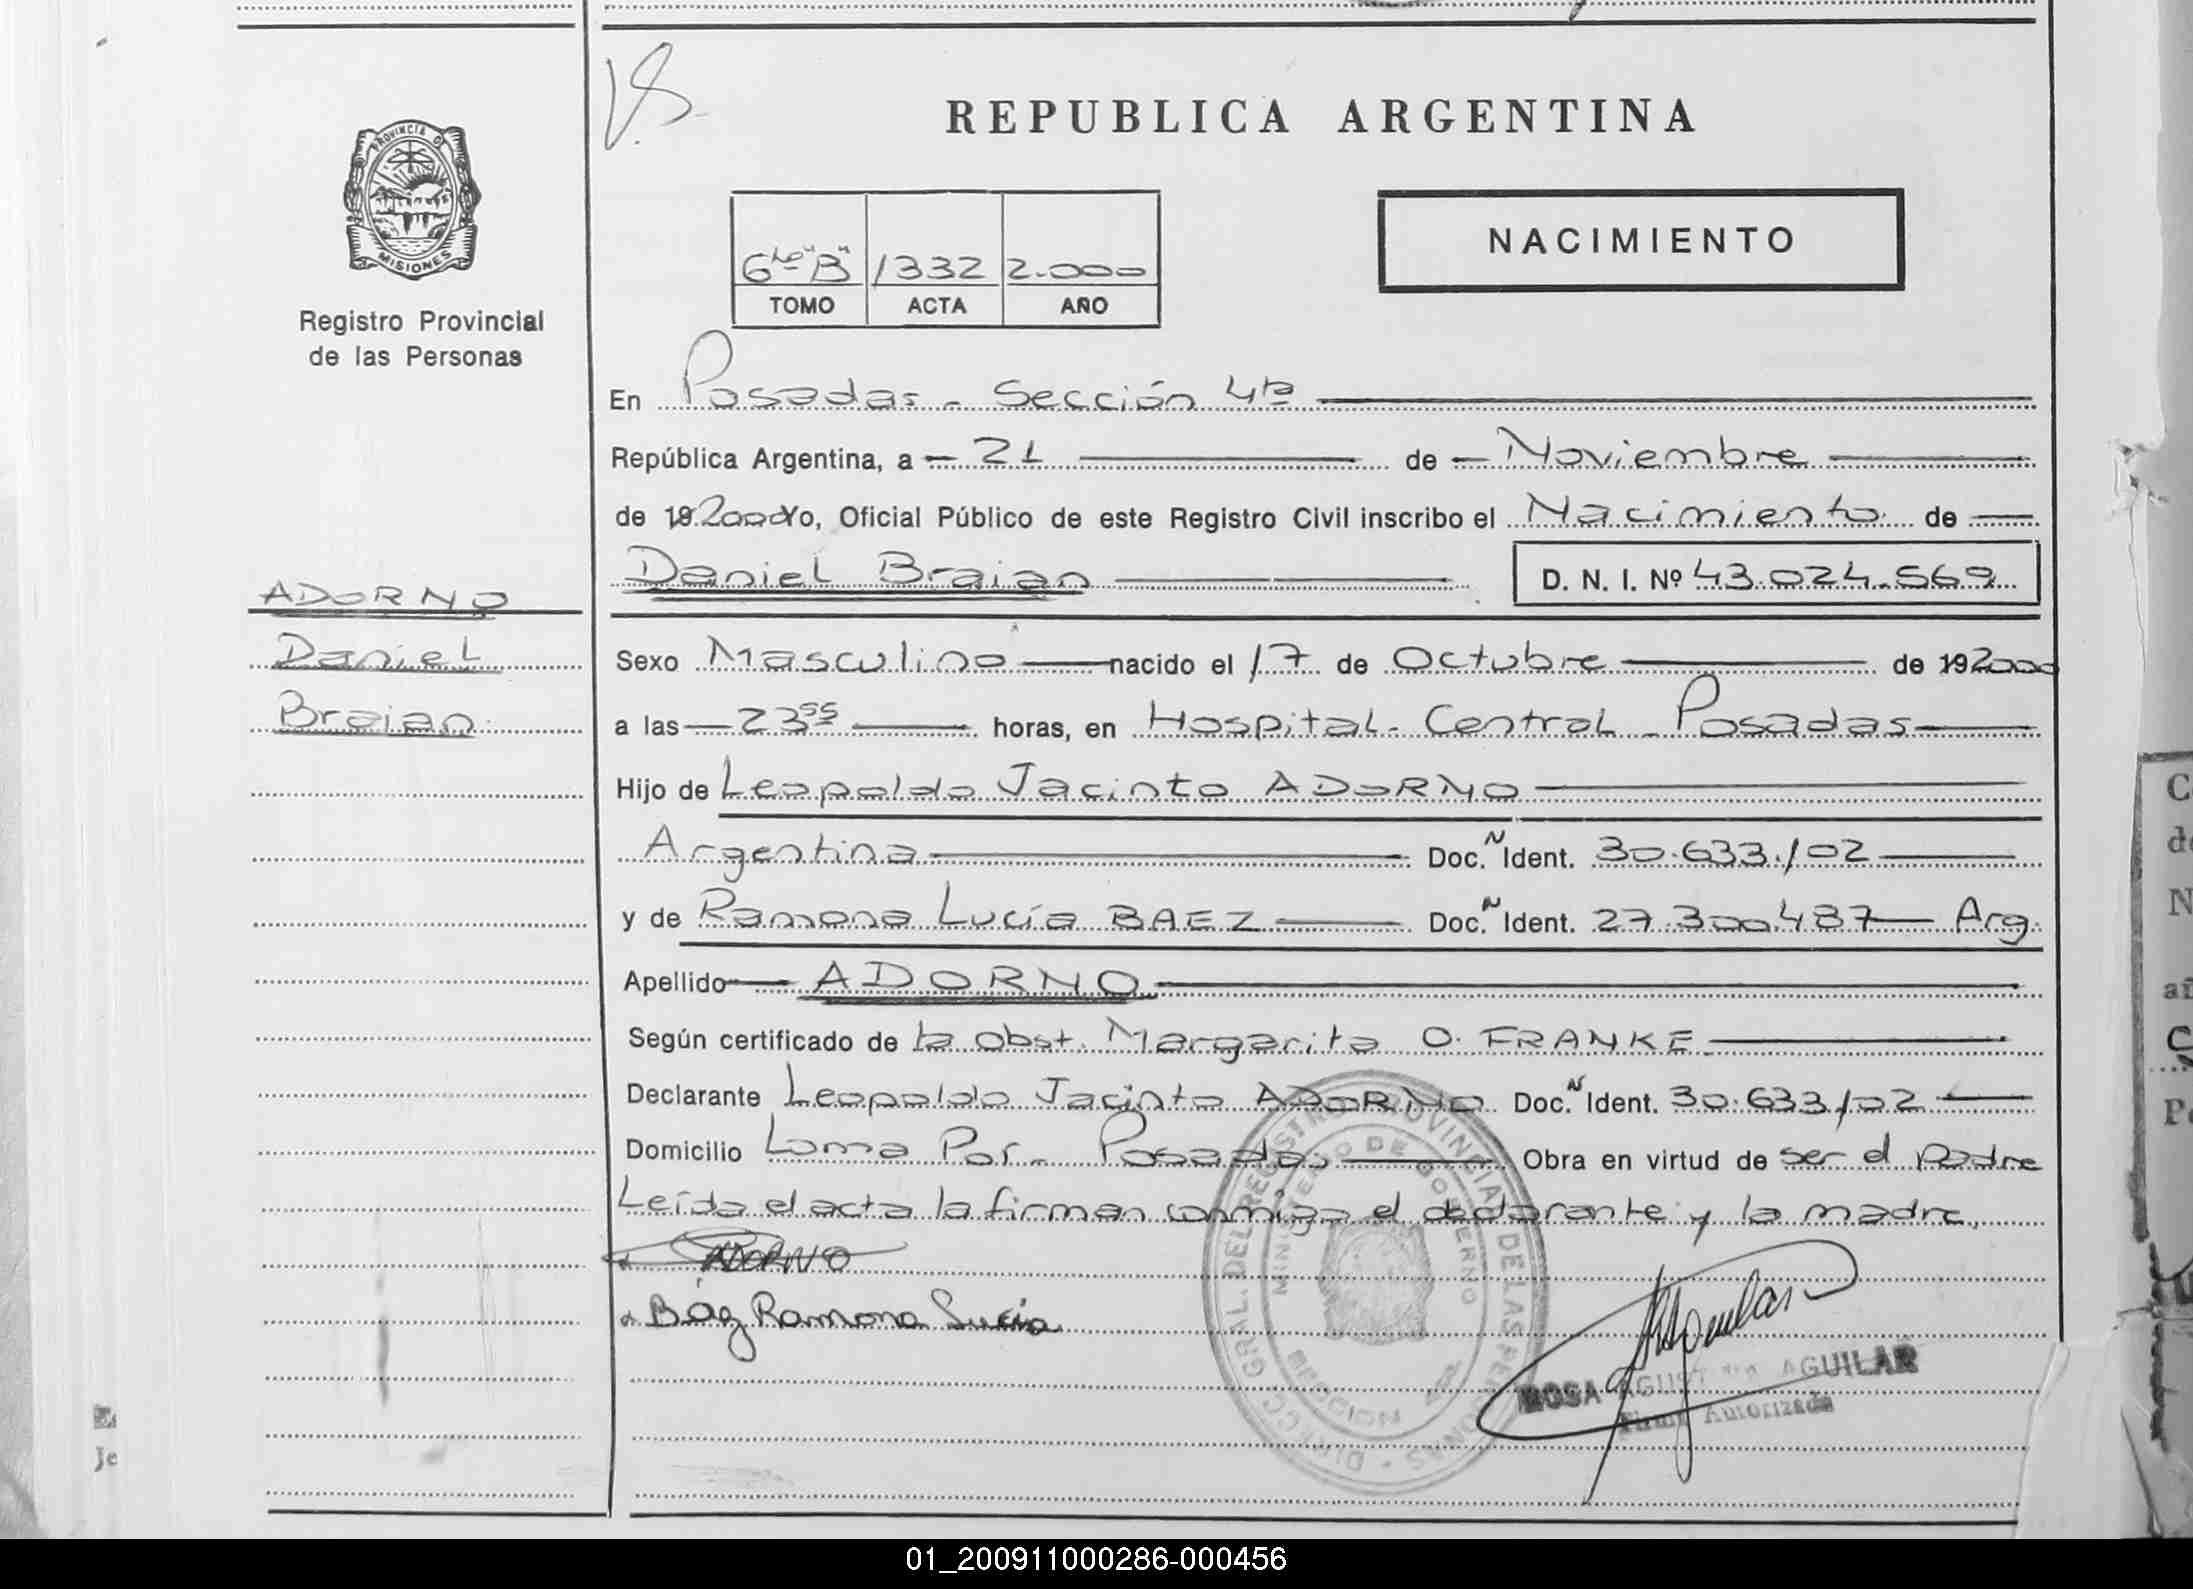 V.S.
REPUBLICA ARGENTINA
PROVINCIA D
MISIONES
Registro Provincial
de las Personas
6to "B" 1332 2.000
TOMO ACTA AÑO
NACIMIENTO
En Posadas - Sección 4ta
República Argentina, a 21 de Noviembre
de 192000 Yo, Oficial Público de este Registro Civil inscribo el Nacimiento de
Daniel Braian D. N. I. Nº 43.024.569
ADORNO
Daniel
Braian
Sexo Masculino nacido el 17 de Octubre de 192000
a las 23 55 horas, en Hospital Central - Posadas
Hijo de Leopoldo Jacinto ADORNO
Argentina Doc. N Ident. 30.633.102
y de Ramona Lucía BAEZ Doc. N Ident. 27.300.487 Arg.
Apellido ADORNO
Según certificado de la obst. Margarita O. FRANKE
Declarante Leopoldo Jacinto ADORNO Doc. N Ident. 30.633.102
Domicilio Loma Por. Posadas Obra en virtud de ser el padre
Leída el acta la firman conmigo el declarante y la madre.
ADORNO
Báez Ramona Lucia
DIRECC. GRAL. DEL REGISTRO PROVINCIAL DE LAS PERSONAS
MINISTERIO DE GOBIERNO
Aguilar
ROSA AGUSTINA AGUILAR
Firma Autorizada
Je
C
de
N
añ
C
P
01_200911000286-000456